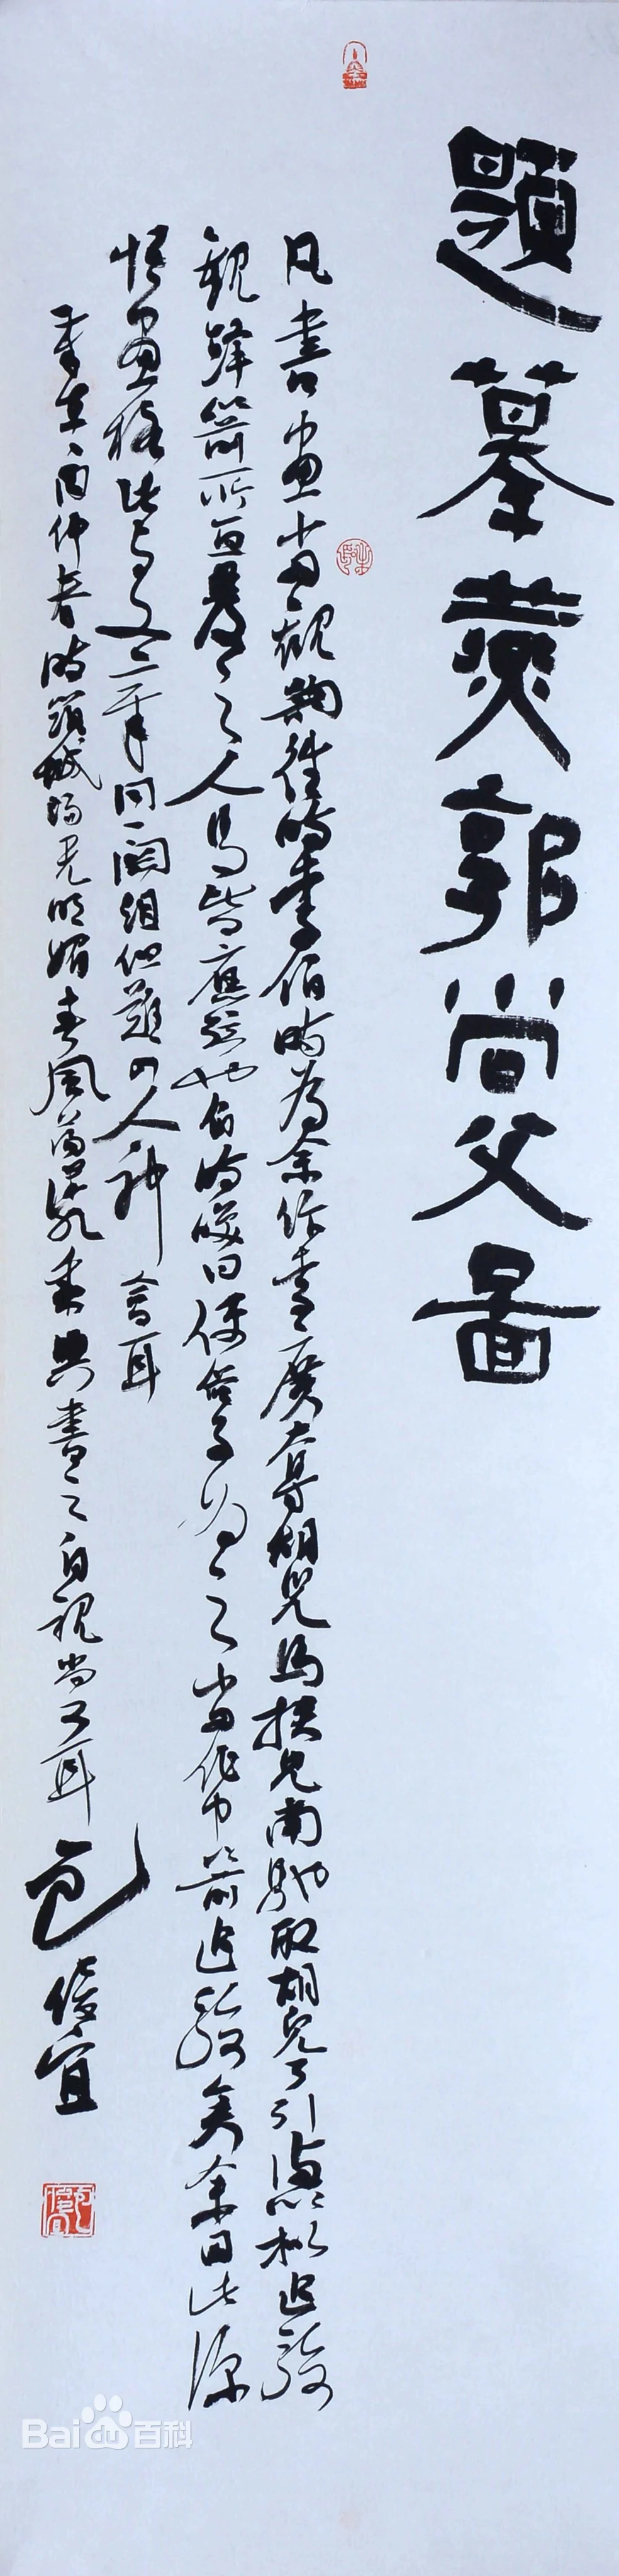 題摹燕郭尚父圖
凡書畫當觀韻往時李伯時為余作李廣奪胡兒馬挾兒南馳取胡兒弓引滿以擬追騎
觀鋒箭所直發之人馬皆應弦也伯時笑曰使俗子為之當作中箭追騎矣余因此深
悟畫格此與文章同一關紐但難得人神會耳
仲春時節城陽光明媚春風蕩漾乘興書之自視尚可耳 包俊宜
Baidu百科